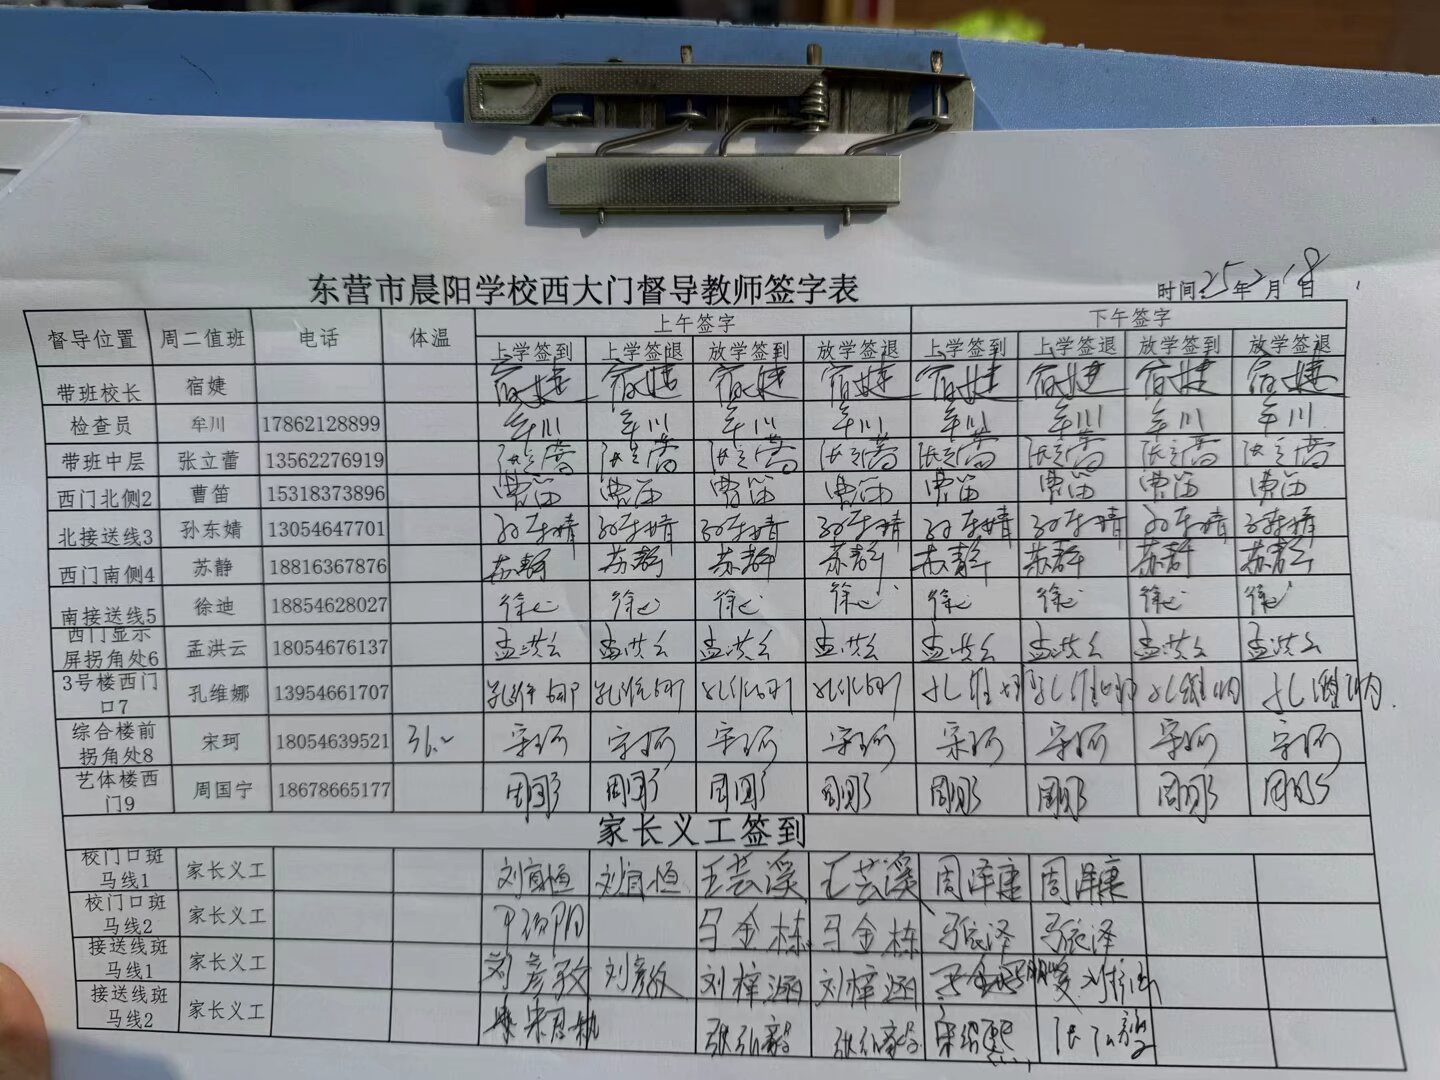 东营市晨阳学校西大门督导教师签字表
时间:25年2月18日
督导位置 周二值班 电话 体温 上午签字 下午签字
上学签到 上学签退 放学签到 放学签退 上学签到 上学签退 放学签到 放学签退
带班校长 宿婕 宿婕 宿婕 宿婕 宿婕 宿婕 宿婕 宿婕 宿婕
检查员 牟川 17862128899 牟川 牟川 牟川 牟川 牟川 牟川 牟川 牟川
带班中层 张立蕾 13562276919 张立蕾 张立蕾 张立蕾 张立蕾 张立蕾 张立蕾 张立蕾 张立蕾
西门北侧2 曹笛 15318373896 曹笛 曹笛 曹笛 曹笛 曹笛 曹笛 曹笛 曹笛
北接送线3 孙东婧 13054647701 孙东婧 孙东婧 孙东婧 孙东婧 孙东婧 孙东婧 孙东婧 孙东婧
西门南侧4 苏静 18816367876 苏静 苏静 苏静 苏静 苏静 苏静 苏静 苏静
南接送线5 徐迪 18854628027 徐迪 徐迪 徐迪 徐迪 徐迪 徐迪 徐迪 徐迪
西门显示
屏拐角处6 孟洪云 18054676137 孟洪云 孟洪云 孟洪云 孟洪云 孟洪云 孟洪云 孟洪云 孟洪云
3号楼西门
口7 孔维娜 13954661707 孔维娜 孔维娜 孔维娜 孔维娜 孔维娜 孔维娜 孔维娜 孔维娜
综合楼前
拐角处8 宋珂 18054639521 36.2 宋珂 宋珂 宋珂 宋珂 宋珂 宋珂 宋珂 宋珂
艺体楼西
门9 周国宁 18678665177
家长义工签到
校门口斑
马线1 家长义工 刘宜恒 刘宜恒 王芸溪 王芸溪 周泽康 周泽康
校门口斑
马线2 家长义工 马金栋 马金栋
接送线斑
马线1 家长义工 刘彦敏 刘彦敏 刘梓涵 刘梓涵
接送线斑
马线2 家长义工